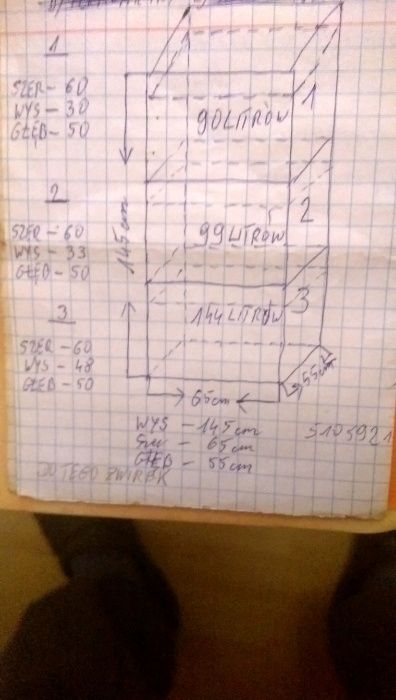 1
SZER - 60
WYS - 30
GŁĘB - 50
2
SZER - 60
WYS - 33
GŁĘB - 50
3
SZER - 60
WYS - 48
GŁĘB - 50
1
90 LITRÓW
2
99 LITRÓW
3
144 LITRÓW
145cm
65cm
55cm
WYS - 145cm
Szer - 65cm
GŁĘB - 55cm
DO TEGO ŻWIREK
5105921